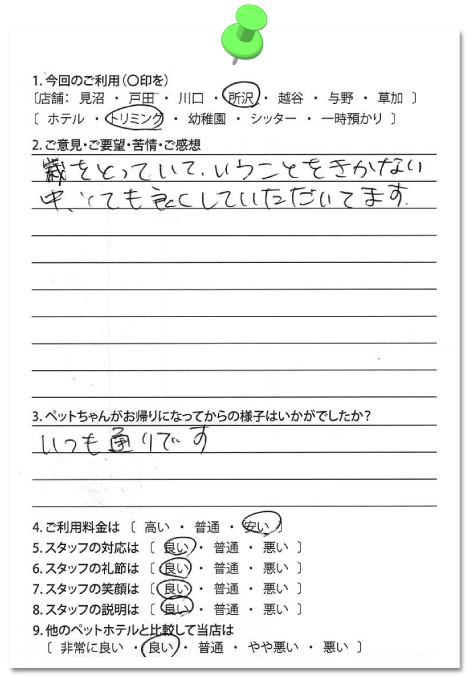 1. 今回のご利用（〇印を）
〔店舗： 見沼 ・ 戸田 ・ 川口 ・ 所沢 ・ 越谷 ・ 与野 ・ 草加 〕
〔 ホテル ・ トリミング ・ 幼稚園 ・ シッター ・ 一時預かり 〕
2. ご意見・ご要望・苦情・ご感想
歳をとっていて、いうことをきかない
中、とても良くしていただいてます.
3. ペットちゃんがお帰りになってからの様子はいかがでしたか？
いつも通りです
4. ご利用料金は 〔 高い ・ 普通 ・ 安い 〕
5. スタッフの対応は 〔 良い ・ 普通 ・ 悪い 〕
6. スタッフの礼節は 〔 良い ・ 普通 ・ 悪い 〕
7. スタッフの笑顔は 〔 良い ・ 普通 ・ 悪い 〕
8. スタッフの説明は 〔 良い ・ 普通 ・ 悪い 〕
9. 他のペットホテルと比較して当店は
〔 非常に良い ・ 良い ・ 普通 ・ やや悪い ・ 悪い 〕